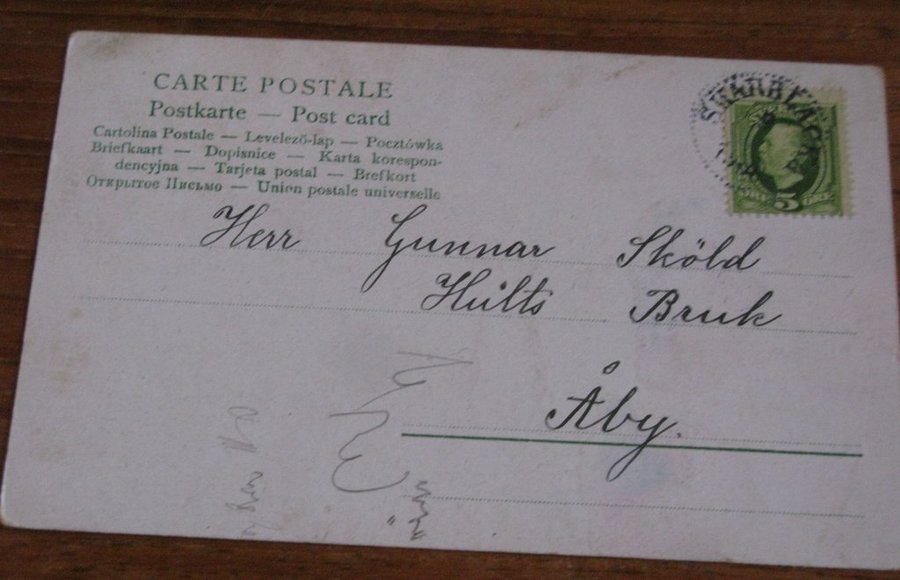 CARTE POSTALE
Postkarte — Post card
Cartolina Postale — Levelező-lap — Pocztówka
Briefkaart — Dopisnice — Karta korespon-
dencyjna — Tarjeta postal — Brefkort
Открытое Письмо — Union postale universelle
Herr Gunnar Sköld
Hults Bruk
Åby.
5